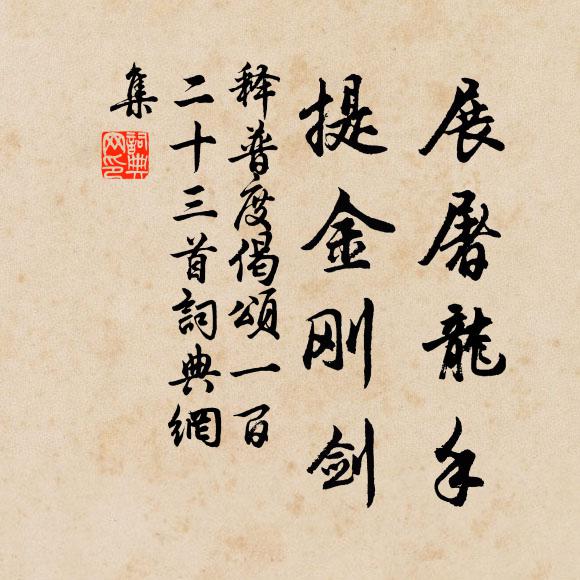 展屠龍手
提金刚劍
释普度偈頌一百
二十三首詞典網
集
詞典
网印